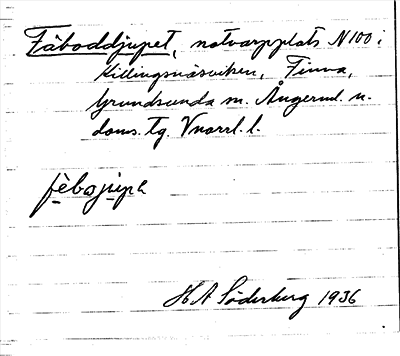 Fäboddjupet, notvarpplats N 100 i
Killingsnäsviken, Finna,
Grundsunda sn. Ångerml. n.
doms. tg. Vnorrl. l.
fèbojupə
H A Söderberg 1936